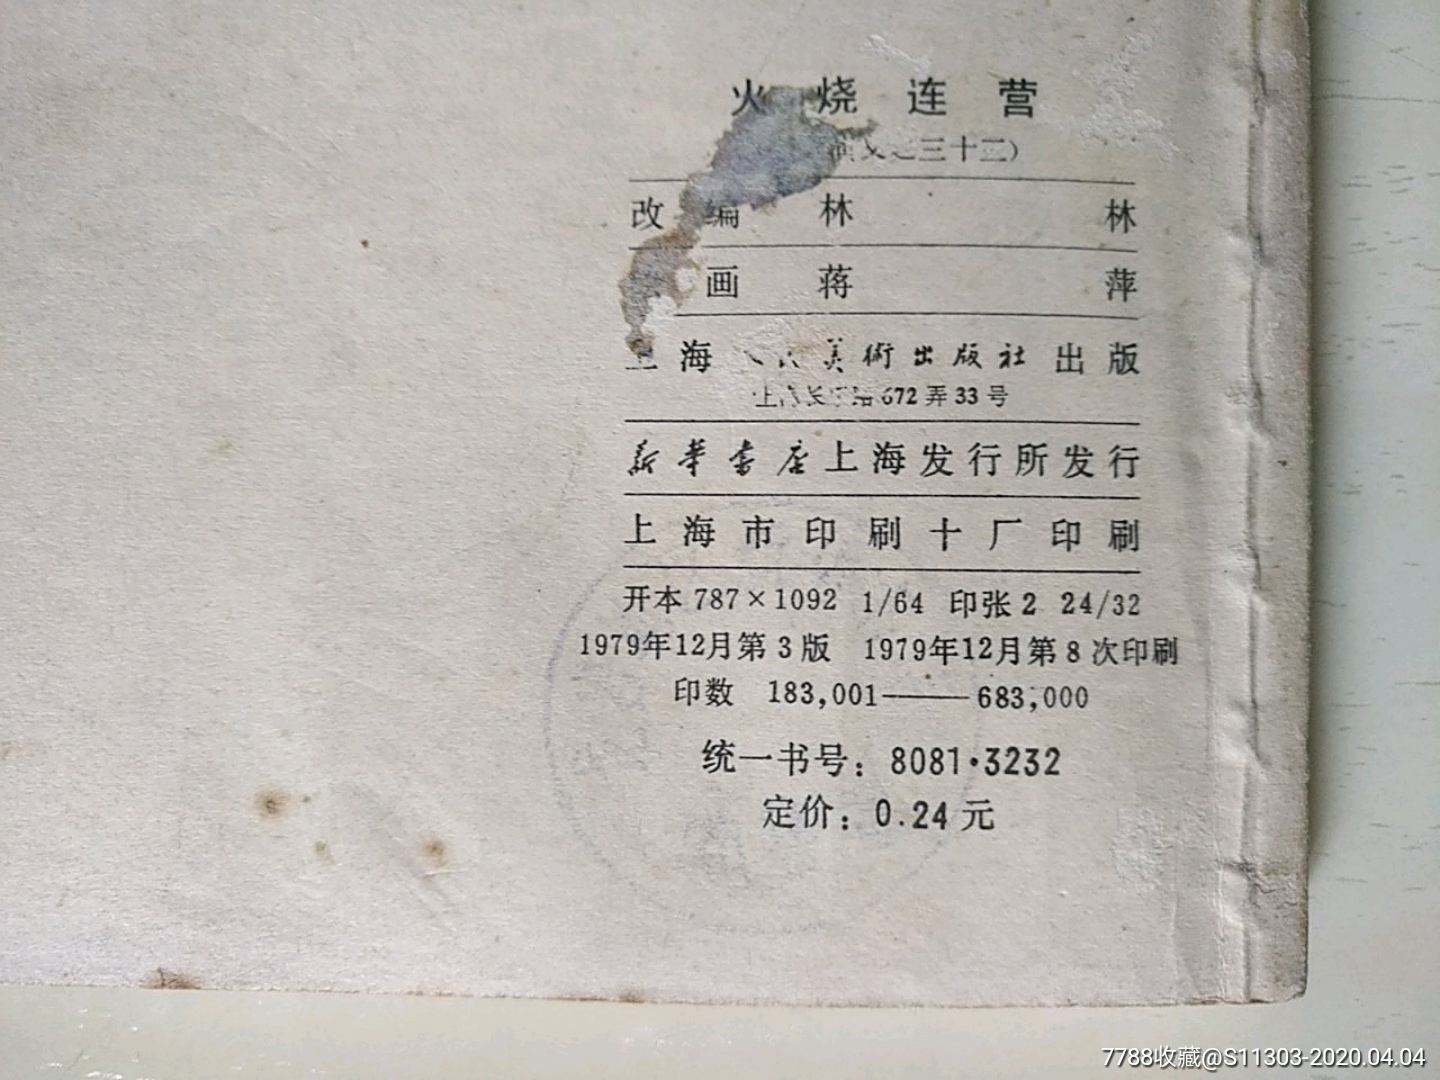 火烧连营
演义之三十三）
改编 林林
绘画 蒋萍
上海人民美術出版社出版
上海长宁路672弄33号
新華書店上海发行所发行
上海市印刷十厂印刷
开本 787×1092 1/64 印张 2 24/32
1979年12月第3版 1979年12月第8次印刷
印数 183,001——683,000
统一书号：8081·3232
定价：0.24元
7788收藏@S11303-2020.04.04